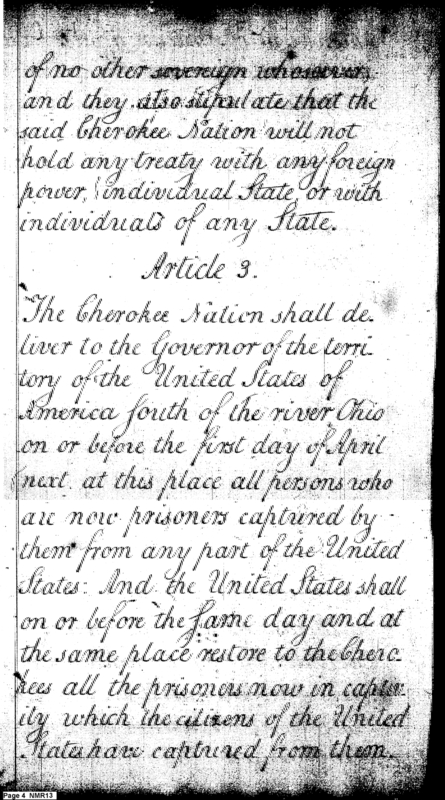 of no other sovereign whosoever;
and they also stipulate that the
said Cherokee Nation will not
hold any treaty with any foreign
power, individual State, or with
individuals of any State.
Article 3.
The Cherokee Nation shall de-
liver to the Governor of the terri-
tory of the United States of
America South of the river Ohio
on or before the first day of April
next, at this place all persons who
are now prisoners captured by
them from any part of the United
States: And the United States shall
on or before the same day and at
the same place restore to the Chero-
kees all the prisoners now in captiv-
ity which the citizens of the United
States have captured from them.
Page 4 NMR13